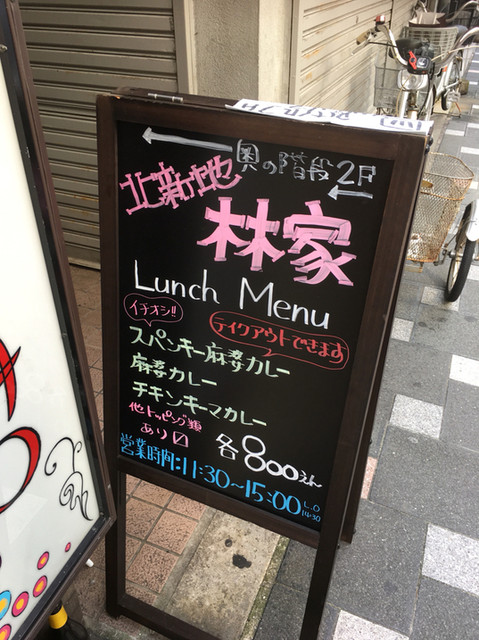 奥の階段2F
北新地
林家
Lunch Menu
イチオシ!!
テイクアウトできます
スパンキー麻婆カレー
麻婆カレー
チキンキーマカレー
他トッピング類
あり〼
各800えん
営業時間:11:30〜15:00
L.O
14:30